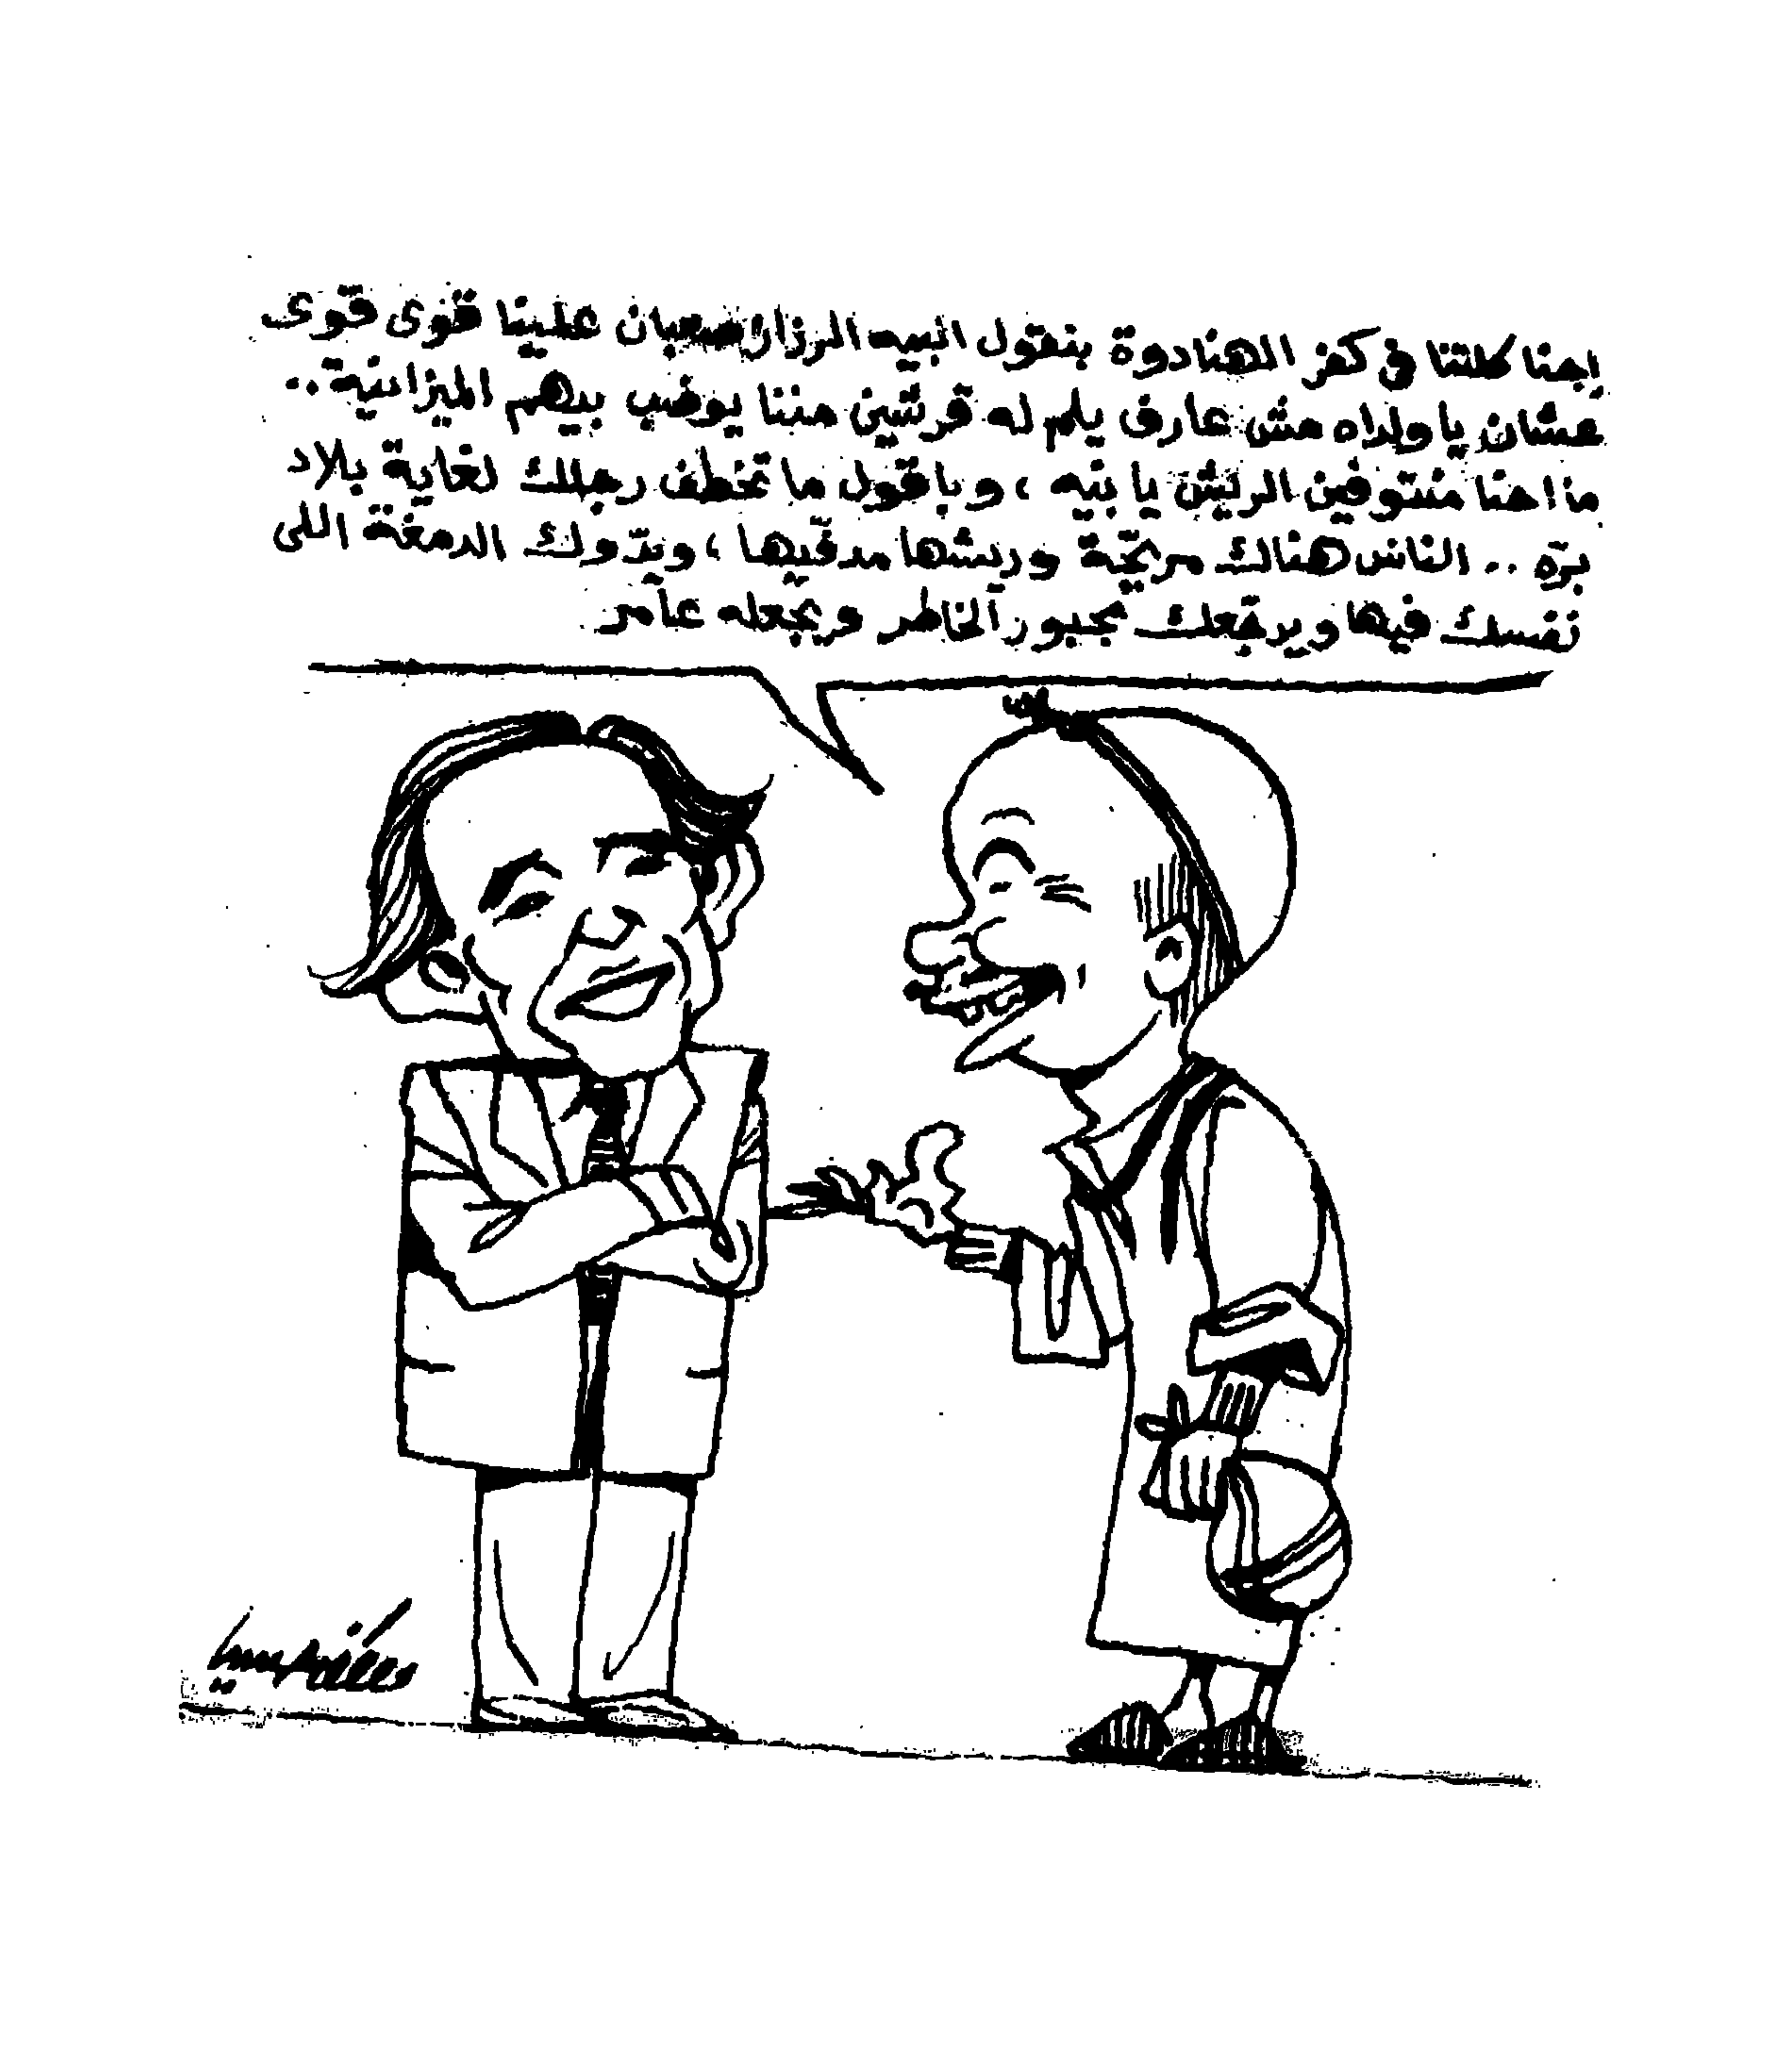 إحنا كلتنا فى كفر الهنادوة بنقول البيه الرزاز صعبان علينا قوى قوى
عشان يا ولداه مش عارف يلم له قرشين مننا يوضب بيهم الميزانية ..
ما احنا منتوفين الريش يا بيه ، وباقول ما تخطف رجلك لغاية بلاد
برّه .. الناس هناك مريّحة وريشها مدفّيها ، ويدّوك الدمغة اللى
نفسك فيها ويرجّعك مجبور الخاطر ويجعله عامر